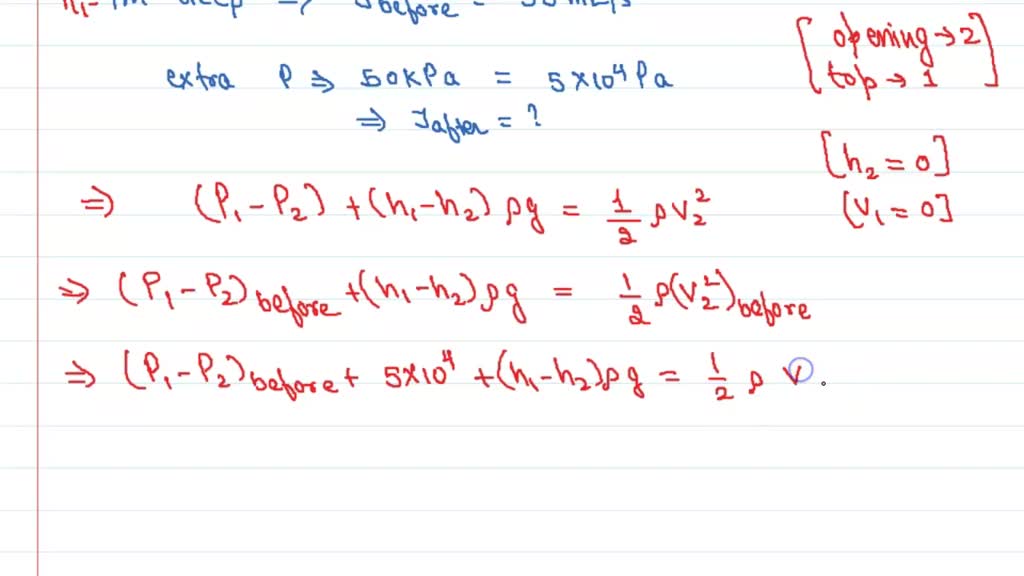 before
extra P ⇒ 50kPa = 5×10⁴ Pa
⇒ Jafter = ?
[opening → 2
top → 1]
[h₂ = 0]
[V₁ = 0]
⇒ (P₁ − P₂) + (h₁ − h₂) ρg = 1/2 ρV₂²
⇒ (P₁ − P₂)before + (h₁ − h₂) ρg = 1/2 ρ(V₂²)before
⇒ (P₁ − P₂)before + 5×10⁴ + (h₁ − h₂) ρg = 1/2 ρ V